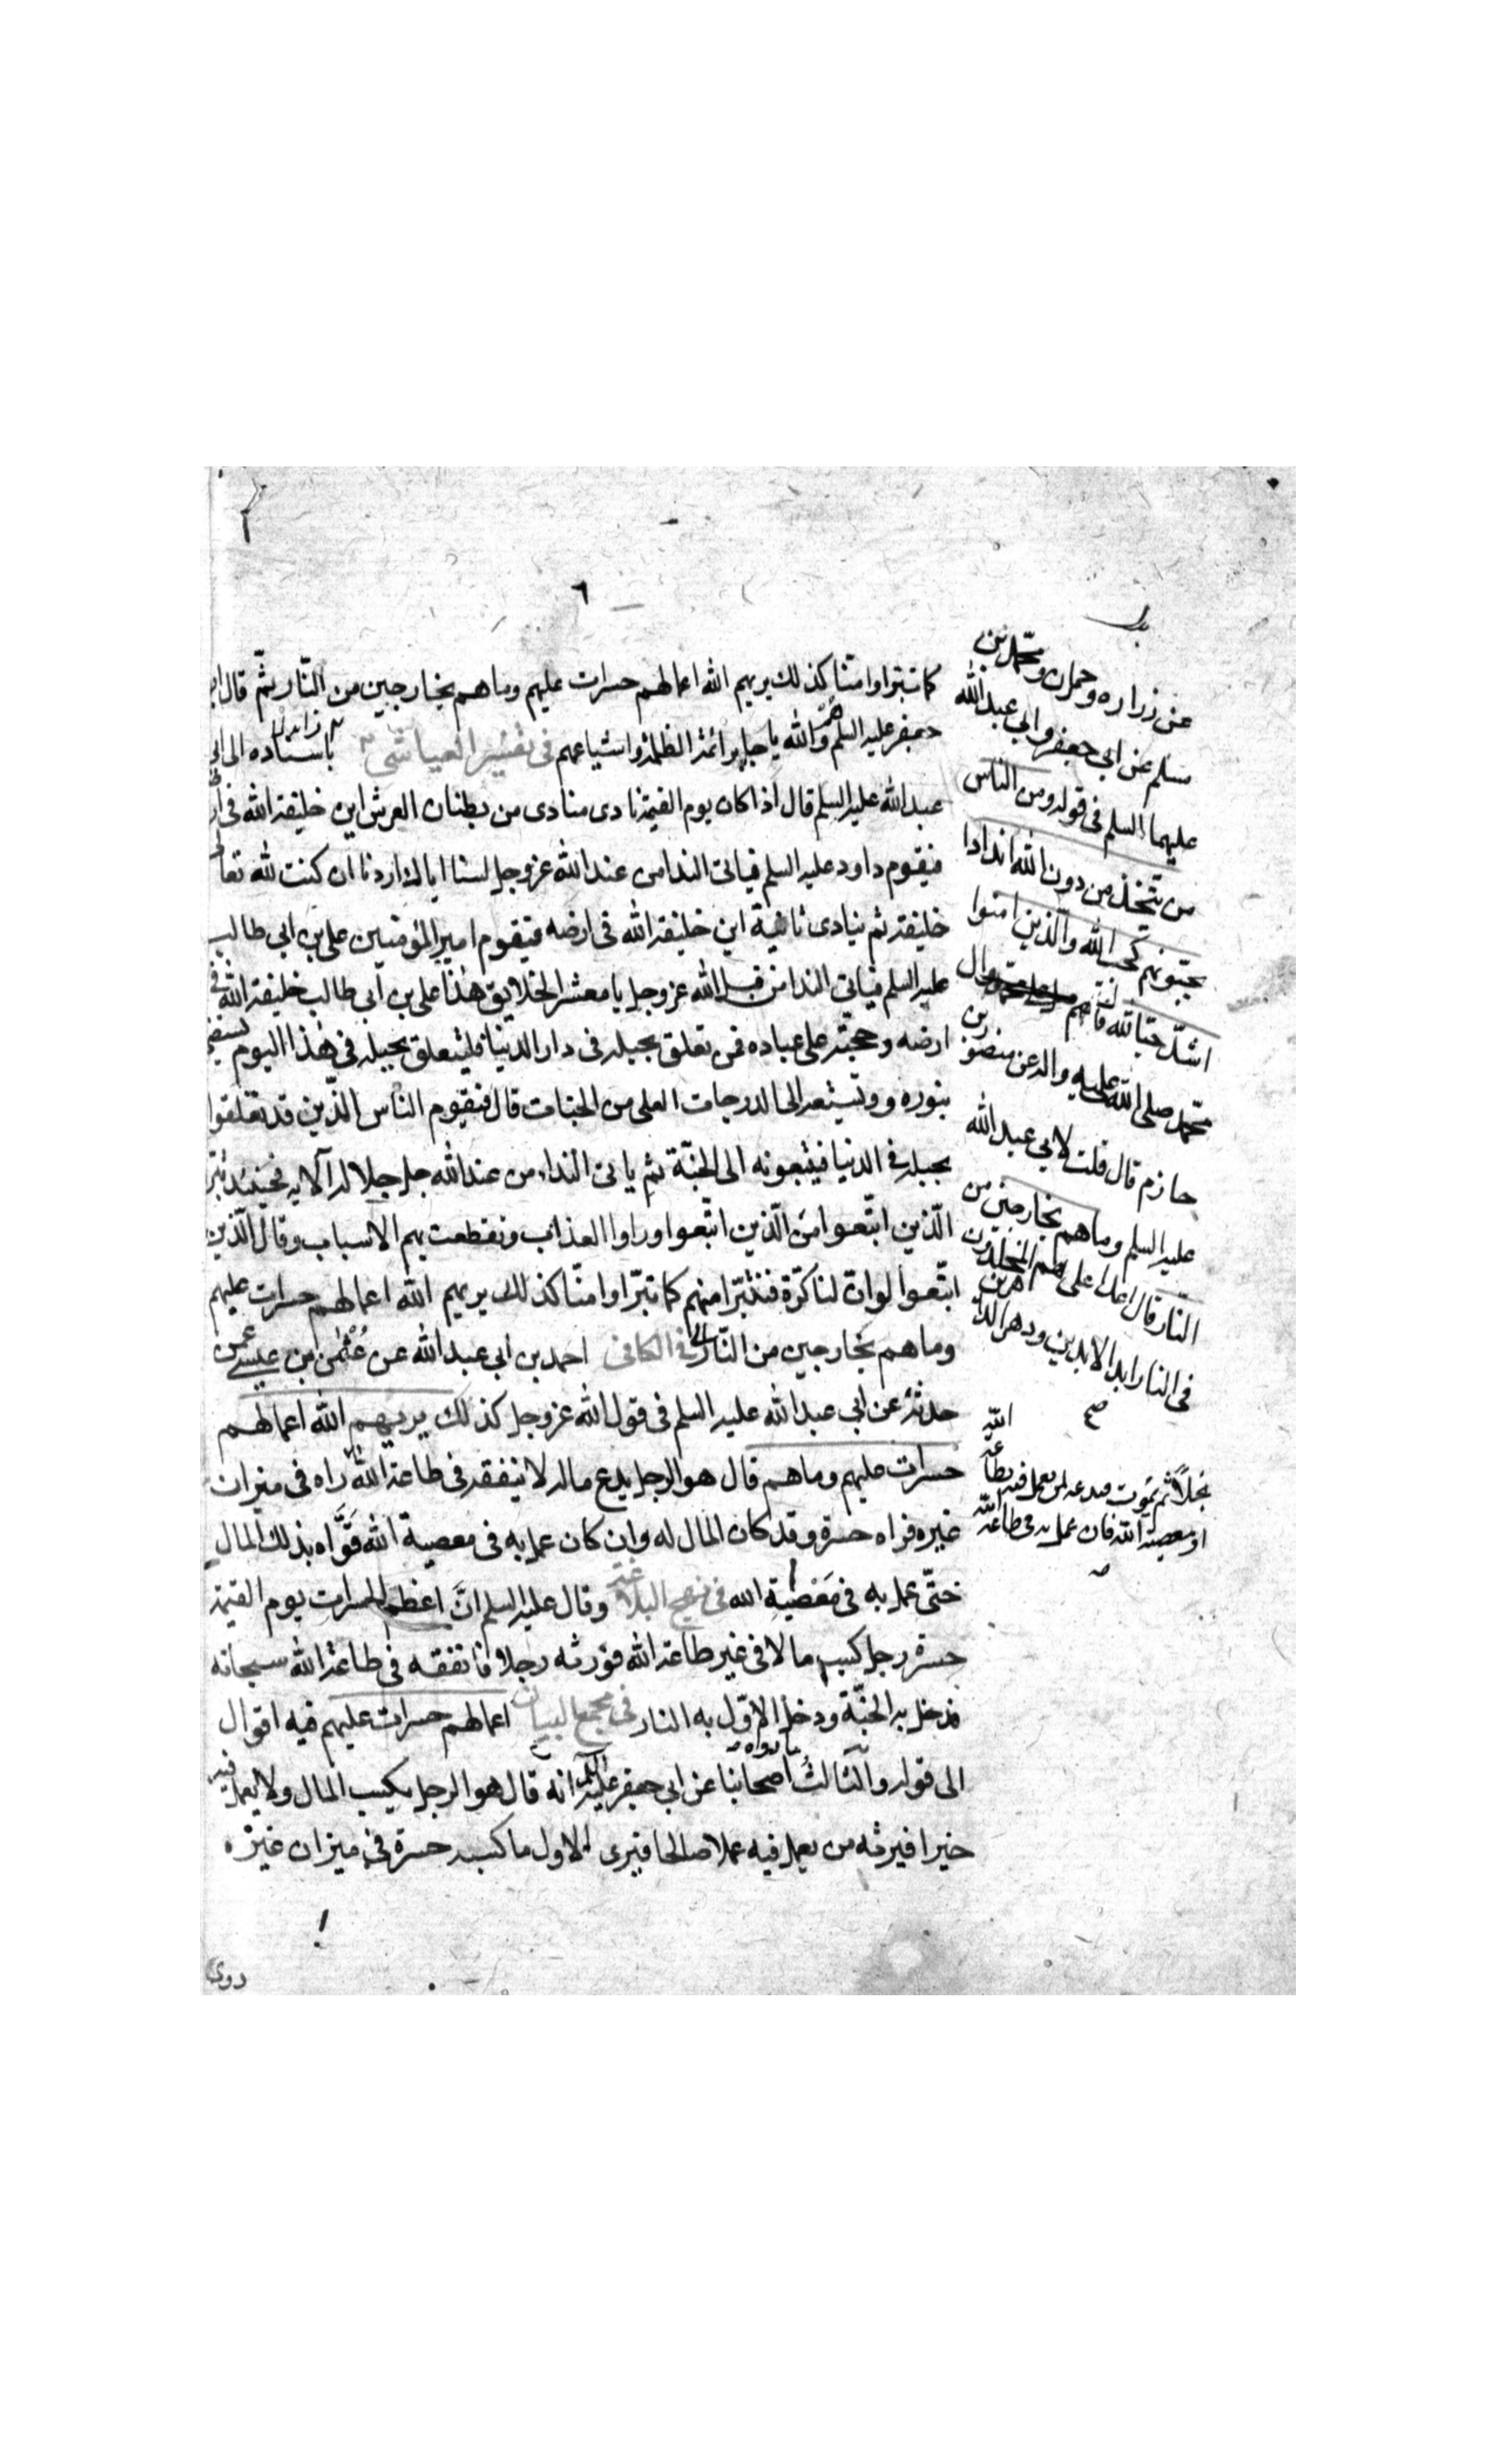 ٦
كما تبرّاوا منّا كذلك يريهم الله اعمالهم حسرات عليهم وما هم بخارجين من النّار ثمّ قال ابو
جعفر عليه السلم هم والله يا جابر ائمة الظلمة واشياعهم فى تفسير العياشى باسناده الى ابى
عبد الله عليه السلم قال اذا كان يوم القيمة نادى منادى من بطنان العرش اين خليفة الله فى ارضه
فيقوم داود عليه السلم فياتى الندا من عند الله عز وجل لسنا اياك اردنا ان كنت لله تعالى
خليفة ثم ينادى ثانية اين خليفة الله فى ارضه فيقوم امير المؤمنين على بن ابى طالب
عليه السلم فياتى الندا من قبل الله عز وجل يا معشر الخلايق هذا على بن ابى طالب خليفة الله فى
ارضه وحجته على عباده فمن تعلق بحبله فى دار الدنيا فليتعلق بحبله فى هذا اليوم
بنوره وليتبعه الى الدرجات العلى من الجنات قال فيقوم الناس الّذين قد تعلقوا
بحبله فى الدنيا فيتبعونه الى الجنّة ثم ياتى النداء من عند الله جل جلاله فحينئذ تبرّا
الّذين اتّبعوا من الّذين اتّبعوا وراوا العذاب وتقطعت بهم الاسباب وقال الّذين
اتّبعوا لو ان لنا كرّة فنتبرّا منهم كما تبرّاوا منّا كذلك يريهم الله اعمالهم حسرات عليهم
وما هم بخارجين من النّار فى الكافى احمد بن ابى عبد الله عن عثمن بن عيسى عمن
حدثه عن ابى عبد الله عليه السلم فى قول الله عز وجل كذلك يريهم الله اعمالهم
حسرات عليهم وما هم قال هو الرجل يدع ماله لا ينفقه فى طاعة الله راه فى ميزان
غيره فراه حسرة وقد كان المال له وان كان عمل به فى معصية الله قوّاه بذلك المال
حتّى عمل به فى معصية الله فى نهج البلاغة وقال عليه السلم انّ اعظم الحسرات يوم القيمة
حسرة رجل كسب مالا فى غير طاعة الله فورثه رجلا فانفقه فى طاعة الله سبحانه
فدخل به الجنّة ودخل الاوّل به النار فى مجمع البيان اعمالهم حسرات عليهم فيه اقوال
الى قوله والثالث ما رواه اصحابنا عن ابى جعفر عليه السلم انه قال هو الرجل يكسب المال ولا يعمل فيه
خيرا فيرثه من يعمل فيه عملا صالحا فيرى الاول ما كسبه حسرة فى ميزان غيره
روى
عن زراره وحمران ومحمد بن
مسلم عن ابى جعفر وابى عبد الله
عليهما السلم فى قوله ومن الناس
من يتّخذ من دون الله اندادا
يحبّونهم كحب الله والّذين امنوا
اشدّ حبّا لله قال هم ال
محمد صلى الله عليه واله عن منصور بن
حازم قال قلت لابى عبد الله
عليه السلم وما هم بخارجين من
النار قال اعدا على هم المخلدون
فى النار ابد الابدين ودهر الداهرين
بخلا ثم يموت فيدعه لمن يعمل فيه بطاعة الله
او معصية الله فان عمل به فى طاعة الله